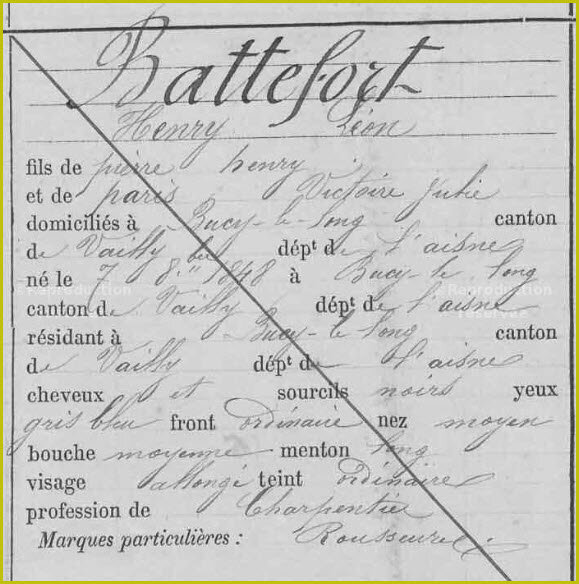 Battefort
Henry Léon
fils de pierre henry
et de paris Victoire Julie
domiciliés à Bucy-le-long canton
de Vailly dépt de l'aisne
né le 7 8bre 1848 à Bucy-le-long
canton de Vailly dépt de l'aisne
résidant à Bucy-le long canton
de Vailly dépt de l'aisne
cheveux et sourcils noirs yeux
gris bleu front ordinaire nez moyen
bouche moyenne menton long
visage allongé teint ordinaire
profession de Charpentier
Marques particulières :
© Reproduction réservée